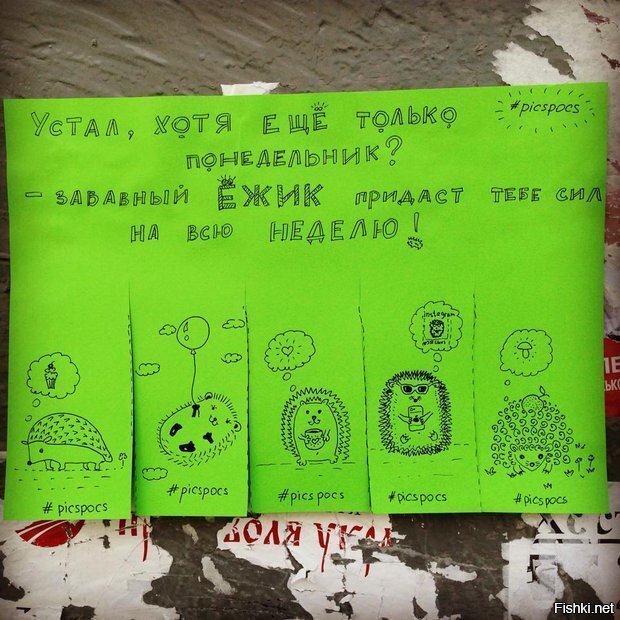 #picspocs
Устал, хотя ещё только
понедельник?
- забавный ёжик придаст тебе сил
на всю неделю!
instagram
#picspocs
#picspocs
#picspocs
#picspocs
#picspocs
Fishki.net